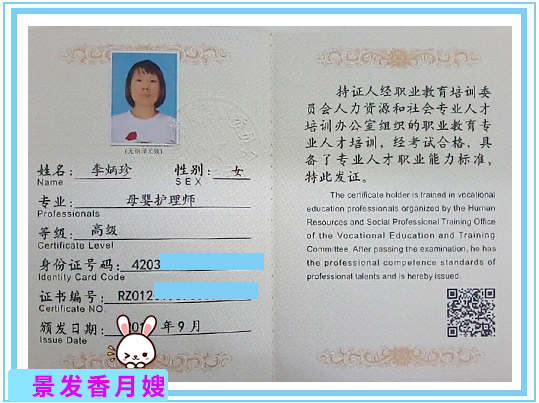 (无钢印无效)
姓名: 李炳珍 性别: 女
Name SEX
专业: 母婴护理师
Professionals
等级: 高级
Certificate Level
身份证号码: 4203
Identity Card Code
证书编号: RZ012
Certificate NO
颁发日期: 201 年9月
Issue Date
持证人经职业教育培训委
员会人力资源和社会专业人才
培训办公室组织的职业教育专
业人才培训,经考试合格,具
备了专业人才职业能力标准,
特此发证。
The certificate holder is trained in vocational
education professionals organized by the Human
Resources and Social Professional Training Office
of the Vocational Education and Training
Committee. After passing the examination, he has
the professional competence standards of
professional talents and is hereby issued.
景发香月嫂